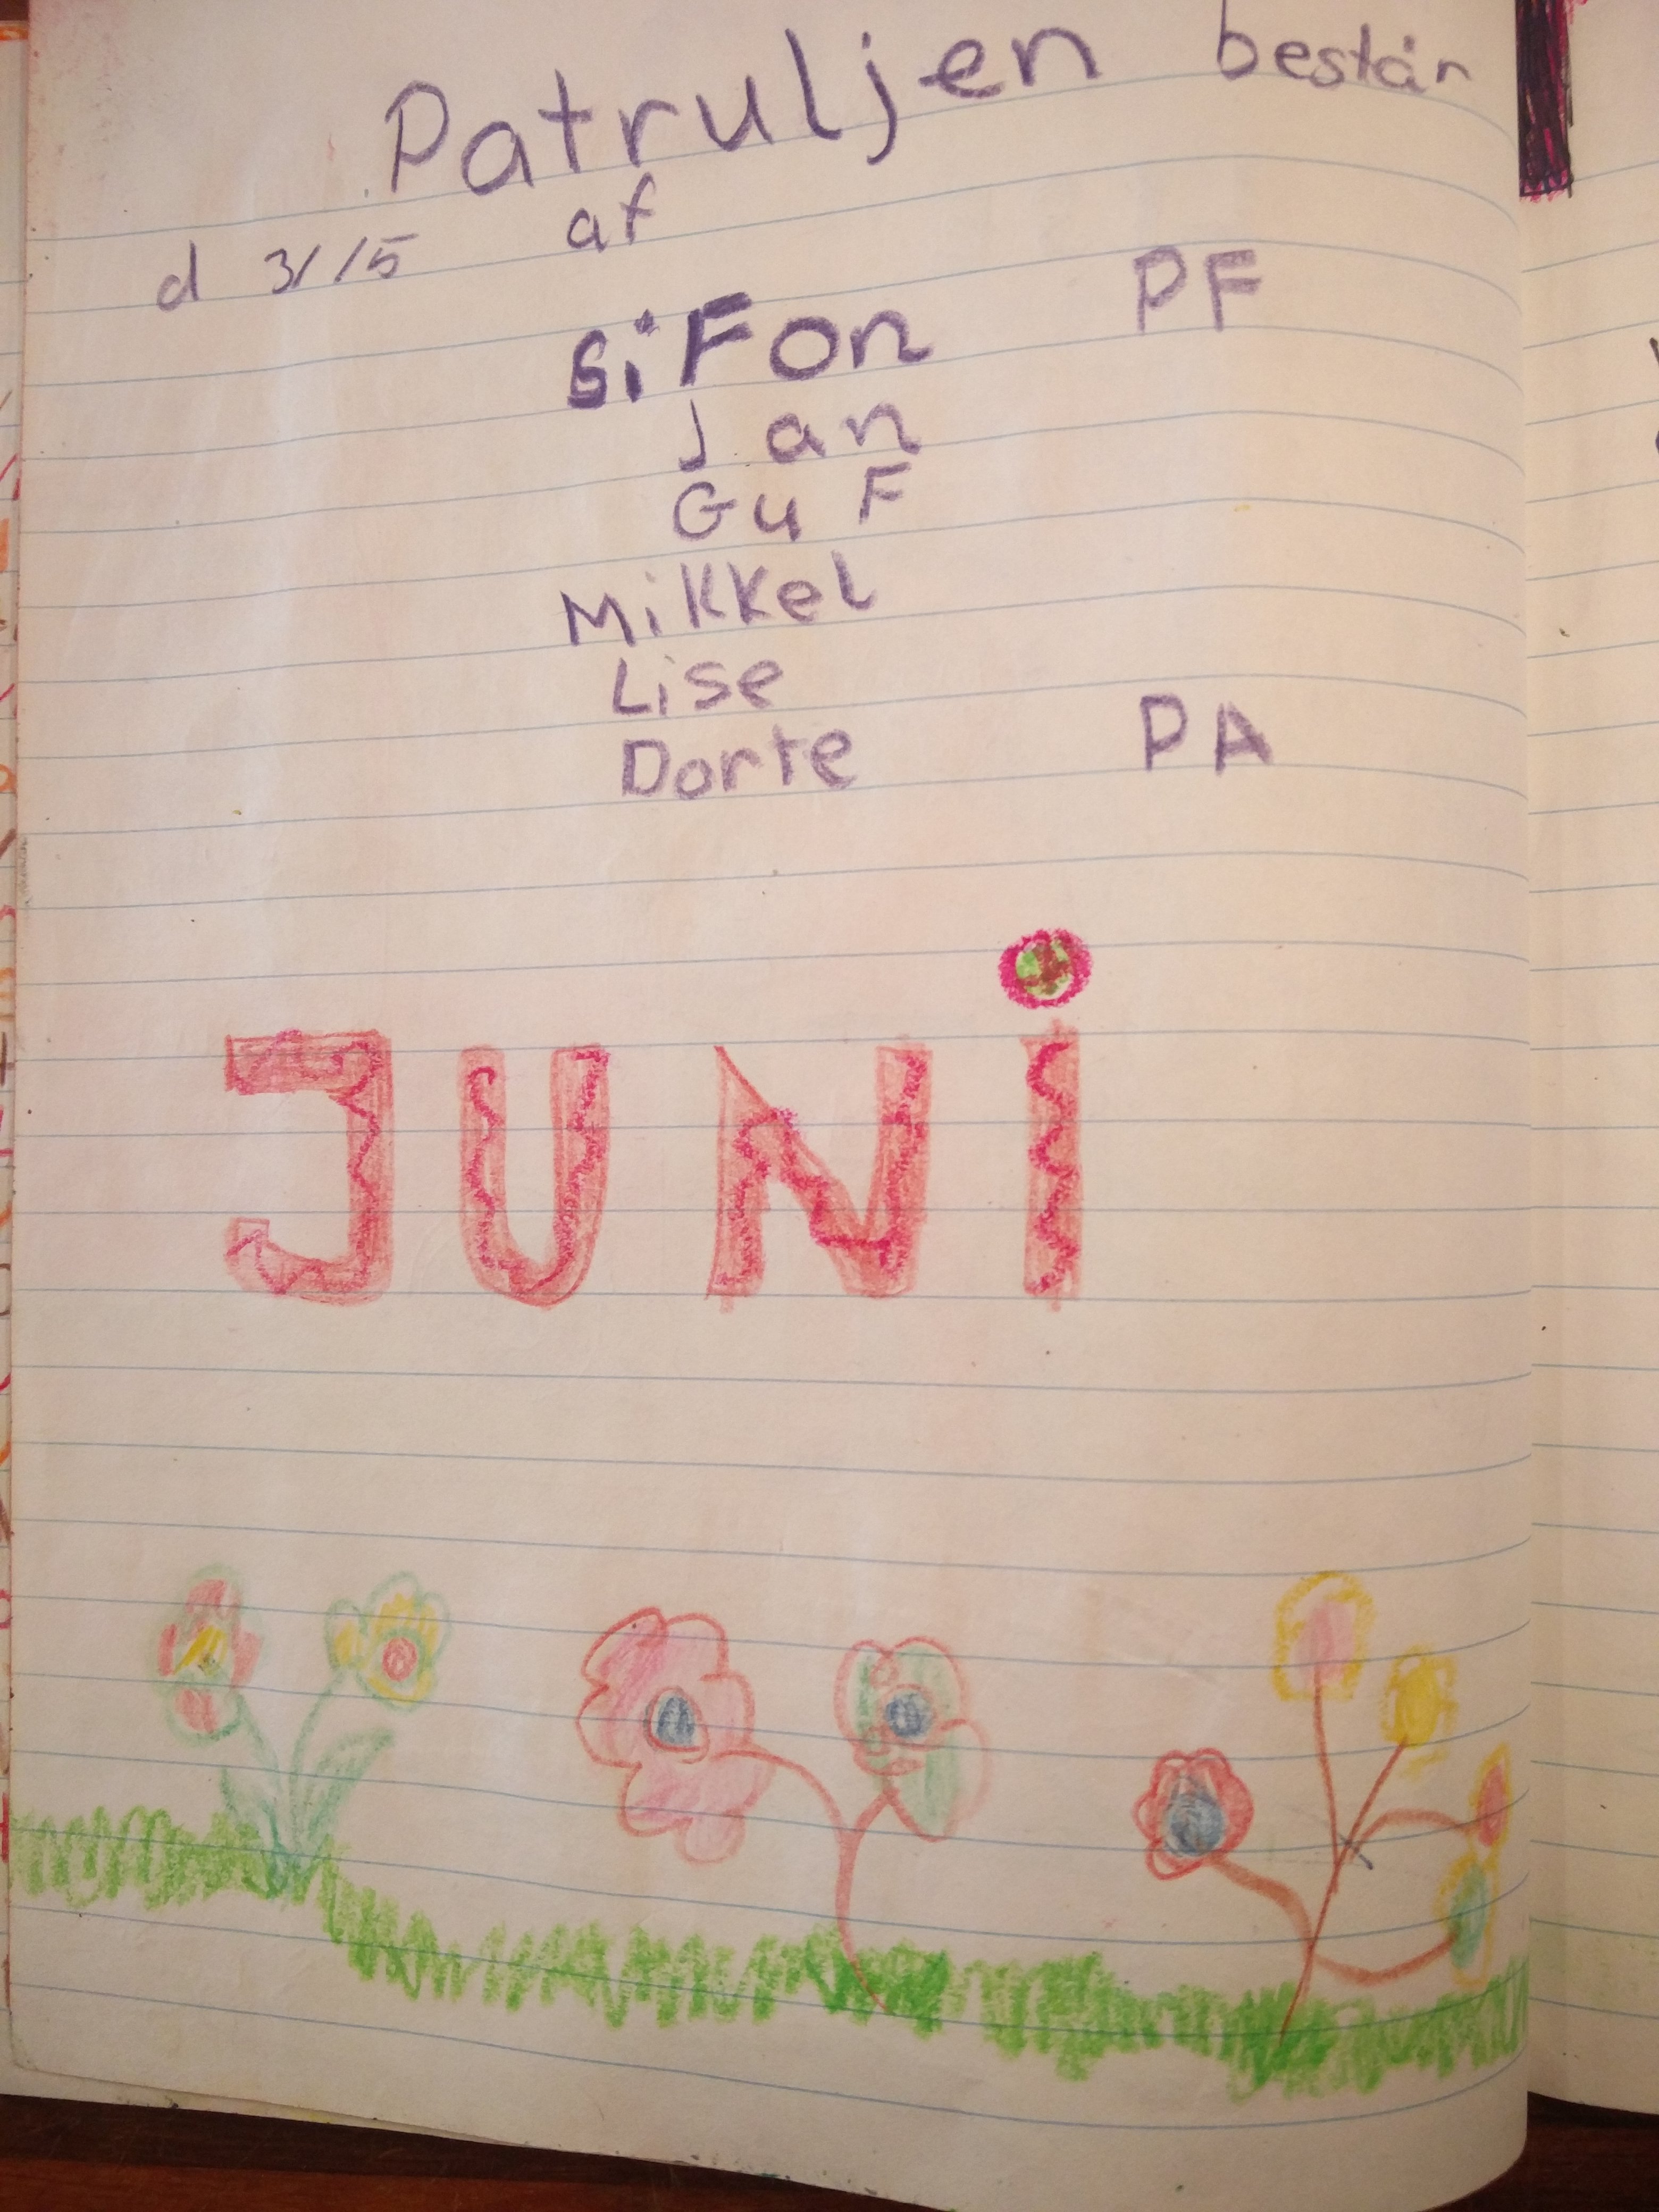 Patruljen består
af
d 31/15
SiFon PF
Jan
GuF
Mikkel
Lise
Dorte PA
JUNi